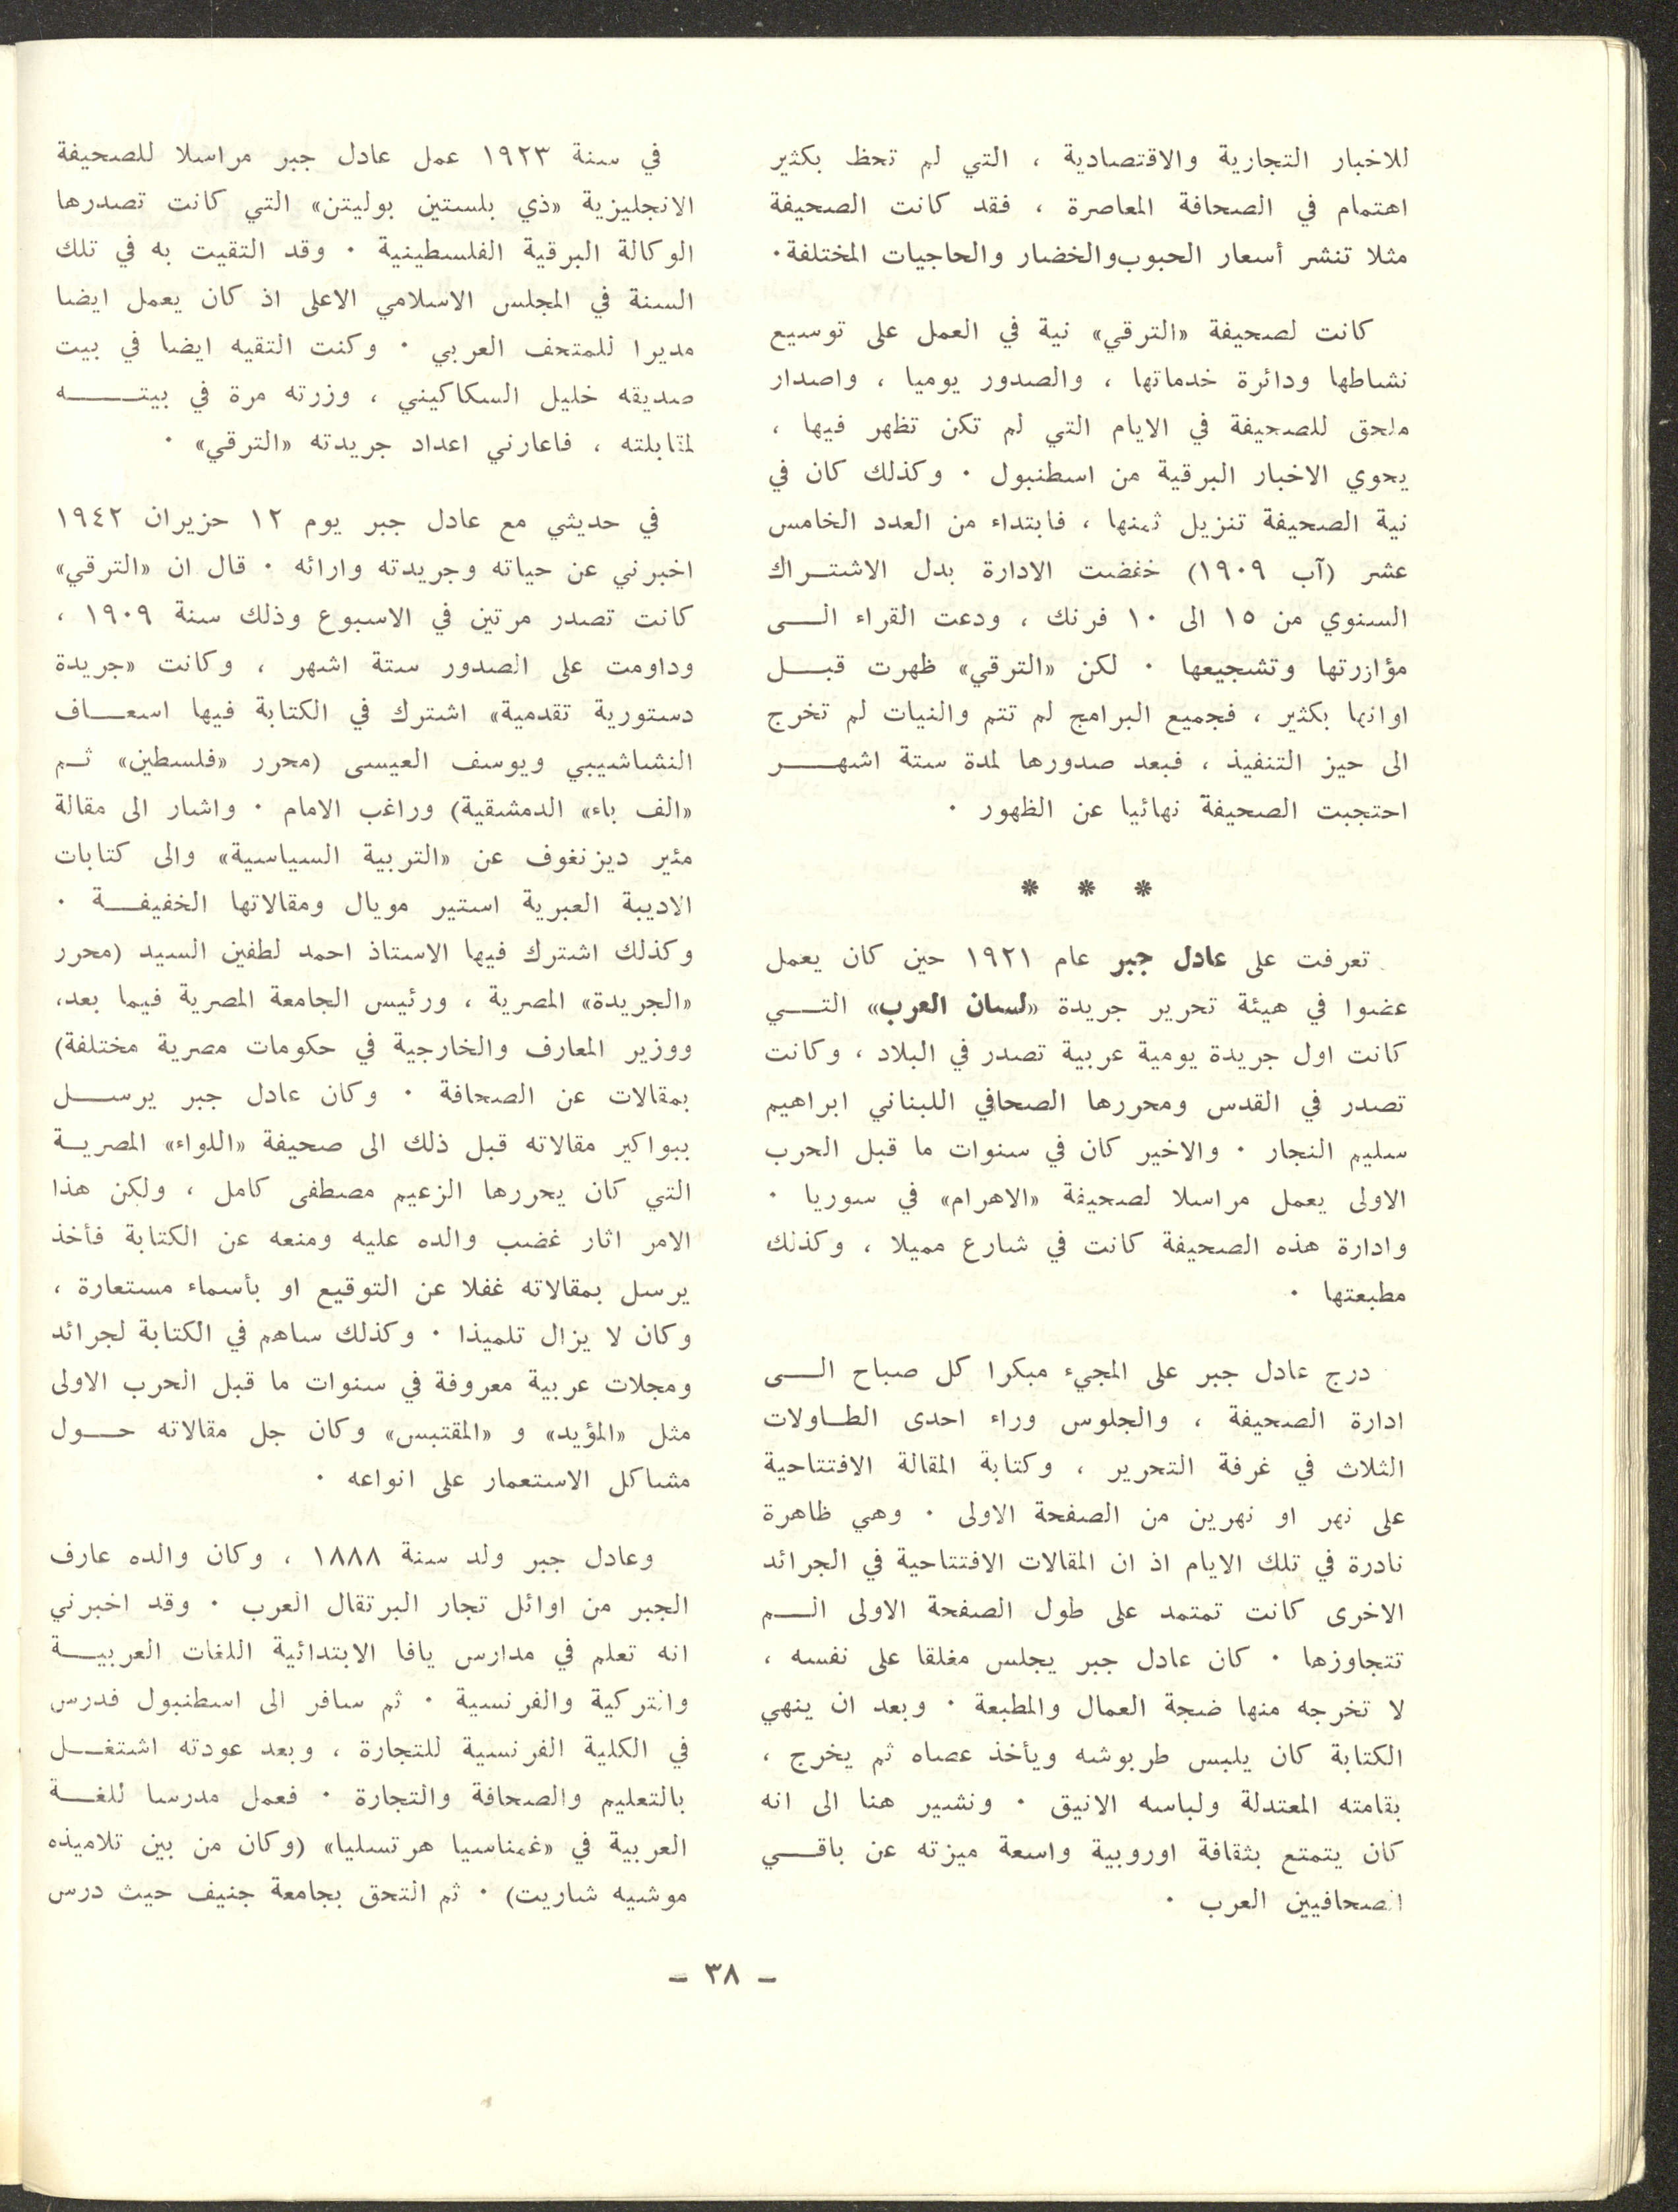 للاخبار التجارية والاقتصادية ، التي لم تحظ بكثير
اهتمام في الصحافة المعاصرة ، فقد كانت الصحيفة
مثلا تنشر أسعار الحبوب والخضار والحاجيات المختلفة٠
كانت لصحيفة «الترقي» نية في العمل على توسيع
نشاطها ودائرة خدماتها ، والصدور يوميا ، واصدار
ملحق للصحيفة في الايام التي لم تكن تظهر فيها ،
يحوي الاخبار البرقية من اسطنبول ٠ وكذلك كان في
نية الصحيفة تنزيل ثمنها ، فابتداء من العدد الخامس
عشر (آب ١٩٠٩) خفضت الادارة بدل الاشتـراك
السنوي من ١٥ الى ١٠ فرنك ، ودعت القراء الـى
مؤازرتها وتشجيعها ٠ لكن «الترقي» ظهرت قبـل
اوانها بكثير ، فجميع البرامج لم تتم والنيات لم تخرج
الى حيز التنفيذ ، فبعد صدورها لمدة ستة اشهـر
احتجبت الصحيفة نهائيا عن الظهور ٠
* * *
تعرفت على عادل جبر عام ١٩٢١ حين كان يعمل
عضوا في هيئة تحرير جريدة «لسان العرب» التـي
كانت اول جريدة يومية عربية تصدر في البلاد ، وكانت
تصدر في القدس ومحررها الصحافي اللبناني ابراهيم
سليم النجار ٠ والاخير كان في سنوات ما قبل الحرب
الاولى يعمل مراسلا لصحيفة «الاهرام» في سوريا ٠
وادارة هذه الصحيفة كانت في شارع مميلا ، وكذلك
مطبعتها ٠
درج عادل جبر على المجيء مبكرا كل صباح الـى
ادارة الصحيفة ، والجلوس وراء احدى الطـاولات
الثلاث في غرفة التحرير ، وكتابة المقالة الافتتاحية
على نهر او نهرين من الصفحة الاولى ٠ وهي ظاهرة
نادرة في تلك الايام اذ ان المقالات الافتتاحية في الجرائد
الاخرى كانت تمتمد على طول الصفحة الاولى الـم
تتجاوزها ٠ كان عادل جبر يجلس مغلقا على نفسه ،
لا تخرجه منها ضجة العمال والمطبعة ٠ وبعد ان ينهي
الكتابة كان يلبس طربوشه ويأخذ عصاه ثم يخرج ،
بقامته المعتدلة ولباسه الانيق ٠ ونشير هنا الى انه
كان يتمتع بثقافة اوروبية واسعة ميزته عن باقـي
الصحافيين العرب ٠
في سنة ١٩٢٣ عمل عادل جبر مراسلا للصحيفة
الانجليزية «ذي بلستين بوليتن» التي كانت تصدرها
الوكالة البرقية الفلسطينية ٠ وقد التقيت به في تلك
السنة في المجلس الاسلامي الاعلى اذ كان يعمل ايضا
مديرا للمتحف العربي ٠ وكنت التقيه ايضا في بيت
صديقه خليل السكاكيني ، وزرته مرة في بيتـه
لمقابلته ، فاعارني اعداد جريدته «الترقي» ٠
في حديثي مع عادل جبر يوم ١٢ حزيران ١٩٤٢
اخبرني عن حياته وجريدته وارائه ٠ قال ان «الترقي»
كانت تصدر مرتين في الاسبوع وذلك سنة ١٩٠٩ ،
وداومت على الصدور ستة اشهر ، وكانت «جريدة
دستورية تقدمية» اشترك في الكتابة فيها اسعـاف
النشاشيبي ويوسف العيسى (محرر «فلسطين» ثـم
«الف باء» الدمشقية) وراغب الامام ٠ واشار الى مقالة
مئير ديزنغوف عن «التربية السياسية» والى كتابات
الاديبة العبرية استير مويال ومقالاتها الخفيفـة ٠
وكذلك اشترك فيها الاستاذ احمد لطفين السيد (محرر
«الجريدة» المصرية ، ورئيس الجامعة المصرية فيما بعد،
ووزير المعارف والخارجية في حكومات مصرية مختلفة)
بمقالات عن الصحافة ٠ وكان عادل جبر يرسـل
ببواكير مقالاته قبل ذلك الى صحيفة «اللواء» المصريـة
التي كان يحررها الزعيم مصطفى كامل ، ولكن هذا
الامر اثار غضب والده عليه ومنعه عن الكتابة فأخذ
يرسل بمقالاته غفلا عن التوقيع او بأسماء مستعارة ،
وكان لا يزال تلميذا ٠ وكذلك ساهم في الكتابة لجرائد
ومجلات عربية معروفة في سنوات ما قبل الحرب الاولى
مثل «المؤيد» و «المقتبس» وكان جل مقالاته حـول
مشاكل الاستعمار على انواعه ٠
وعادل جبر ولد سنة ١٨٨٨ ، وكان والده عارف
الجبر من اوائل تجار البرتقال العرب ٠ وقد اخبرني
انه تعلم في مدارس يافا الابتدائية اللغات العربيـة
والتركية والفرنسية ٠ ثم سافر الى اسطنبول فدرس
في الكلية الفرنسية للتجارة ، وبعد عودته اشتغـل
بالتعليم والصحافة والتجارة ٠ فعمل مدرسا للغـة
العربية في «غمناسيا هرتسليا» (وكان من بين تلاميذه
موشيه شاريت) ٠ ثم التحق بجامعة جنيف حيث درس
– ٣٨ –